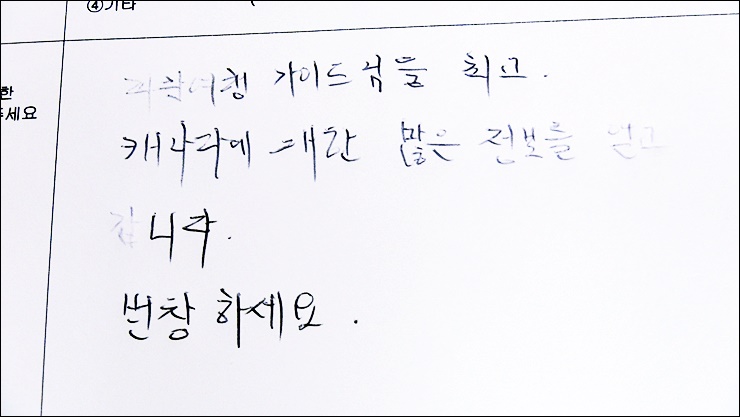 ④기타
한
주세요
파란여행 가이드님들 최고.
캐나다에 대한 많은 정보를 알고
갑니다.
번창 하세요.